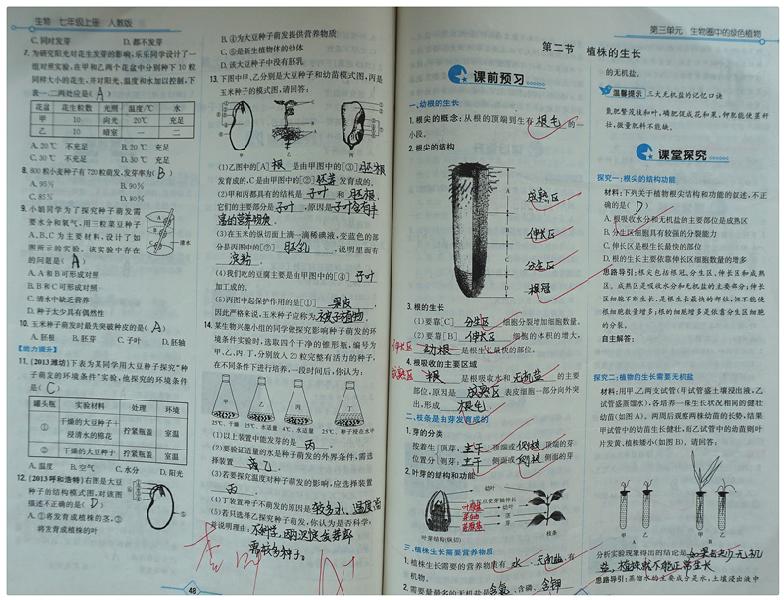 生物 七年级上册 人教版
C. 同时发芽 D. 都不发芽
7. 为研究阳光对花生发芽的影响,乐乐同学设计了一
组对照实验,在甲和乙两个花盆中分别种下10粒
同样大小的花生,并对阳光、温度和水加以控制,下
表一、二两处应是( A )
花盆 花生粒数 光照 温度/℃ 水
甲 10 向光 20℃ 充足
乙 10 暗室 一 二
A. 20℃ 不充足 B. 20℃ 充足
C. 30℃ 不充足 D. 30℃ 充足
8. 800粒小麦种子有720粒萌发,发芽率为( B )
A. 95% B. 90%
C. 85% D. 80%
9. 小娟同学为了探究种子萌发需
要水分和氧气,用三粒菜豆种子
A、B、C为主要材料,设计了如
图所示的实验。该实验中存在
的问题是( A )
清水
A. A和B可形成对照
B. B和C可形成对照
C. 清水中缺乏营养
D. 种子太少具有偶然性
10. 玉米种子萌发时最先突破种皮的是( A )
A. 胚根 B. 胚芽 C. 子叶 D. 胚轴
【能力提升】
11. (2013潍坊)下表为某同学用大豆种子探究“种
子萌发的环境条件”实验,他探究的环境条件
是( C )
罐头瓶 实验材料 处理 环境
① 干燥的大豆种子+浸清水的棉花 拧紧瓶盖 室温
② 干燥的大豆种子 拧紧瓶盖 室温
A. 温度 B. 空气 C. 水分 D. 阳光
12. (2013呼和浩特)右图是大豆
种子的结构模式图,对该图
描述不正确的是( D )
A. ①将发育成植株的茎,②
将发育成植株的叶
B. ④为大豆种子萌发提供营养物质
C. ⑤是新生植物体的幼体
D. 该大豆种子中没有胚乳
13. 下图中甲、乙分别是大豆种子和幼苗模式图,丙是
玉米种子的模式图,请回答:
甲 乙 丙
(1)乙图中的[A] 根 是由甲图中的[③] 胚根
发育成的,C是由甲图中的[②] 胚芽 发育成的。
(2)甲和丙都具有的结构是 子叶 和 胚根,
它们的主要部分是 子叶,原因是 子叶含有丰
富的营养物质。
(3)在玉米的纵切面上滴一滴稀碘液,变蓝色的部
分是丙图中的[②] 胚乳,说明里面有
淀粉。
(4)我们吃的豆腐主要是由甲图中的[④] 子叶
加工成的。
(5)丙图中起保护作用的是[①] 果皮,
因此严格来说,玉米种子应称为 被子植物。
14. 某生物兴趣小组的同学做探究影响种子萌发的环
境条件实验时,选取四个干净的锥形瓶,编号为
甲、乙、丙、丁,分别放入21粒完整有活力的种子,
在不同条件下进行培养,一段时间后,你认为:
甲 乙 丙 丁
25℃、干燥 15℃、水适量 25℃、水适量 25℃、种子浸在水中
(1)以上装置中能萌发的是 丙。
(2)要验证适量的水是种子萌发的外界条件,需选
择装置
(3)若要探究温度对种子萌发的影响,应选择装置
丙。
(4)丁装置种子不萌发的原因是
(5)若只选乙探究种子萌发,你认为是否科学,
说明理由:
需较多种子。
48
第三单元 生物圈中的绿色植物
第二节 植株的生长
课前预习
一、幼根的生长
1. 根尖的概念:从根的顶端到生有 根毛 的一
小段。
2. 根尖的结构
A
B
C
D
成熟区
伸长区
分生区
根冠
3. 根的生长
(1)要靠[C] 分生区 细胞分裂增加细胞数量。
(2)要靠[B] 伸长区 细胞的体积的增大,
伸长区 幼根 是根生长最快的部位。
4. 根吸收的主要区域
成熟区 根 是根吸收水和 无机盐 的主要
部位,原因是 成熟区 表皮细胞一部分向外突
出,形成 根毛。
二、枝条是由芽发育成的
1. 芽的分类
按着生位置分
顶芽: 主干 顶端或 侧枝 顶端的芽
侧芽: 主干 侧面或 侧枝 侧面的芽
2. 叶芽的结构和功能
幼叶
叶原基
芽轴
芽原基
叶
茎
芽
叶芽结构(纵切) 枝条
三、植株生长需要营养物质
1. 植株生长需要的营养物质有 水、无机盐、有
机物。
2. 需要量最多的无机盐是 含氮、含磷、含钾
的无机盐。
温馨提示 三大无机盐的记忆口诀
氮肥繁茂枝和叶,磷肥促成花和果,钾肥能使茎秆
壮,微量肥料不能缺。
课堂探究
探究一:根尖的结构功能
材料:下列关于植物根尖结构和功能的叙述,不正
确的是( D )
A. 根吸收水分和无机盐的主要部位是成熟区
B. 分生区细胞具有较强的分裂能力
C. 伸长区是根生长最快的部分
D. 根的生长主要依靠伸长区细胞数量的增多
思路导引:根尖包括根冠、分生区、伸长区和成熟
区。成熟区是吸收水分和无机盐的主要部分;伸长
区细胞不断生长,是根生长最快的部位,但不能使
根细胞数量增多;根的细胞增多是依靠分生区细胞
的分裂。
自主解答:
探究二:植物的生长需要无机盐
材料:用甲、乙两支试管(甲试管盛土壤浸出液,乙
试管盛蒸馏水),各培养一株生长状况相同的健壮
幼苗(如图A)。两周后观察两株幼苗的长势,结果
甲试管中的幼苗生长健壮,而乙试管中的幼苗则叶
片发黄,植株矮小(如图B)。请回答:
甲 乙 甲 乙
A B
分析实验现象得出的结论是 如果缺少无机
盐,植株就不能正常生长
思路导引:蒸馏水的主要成分是水,土壤浸出液中